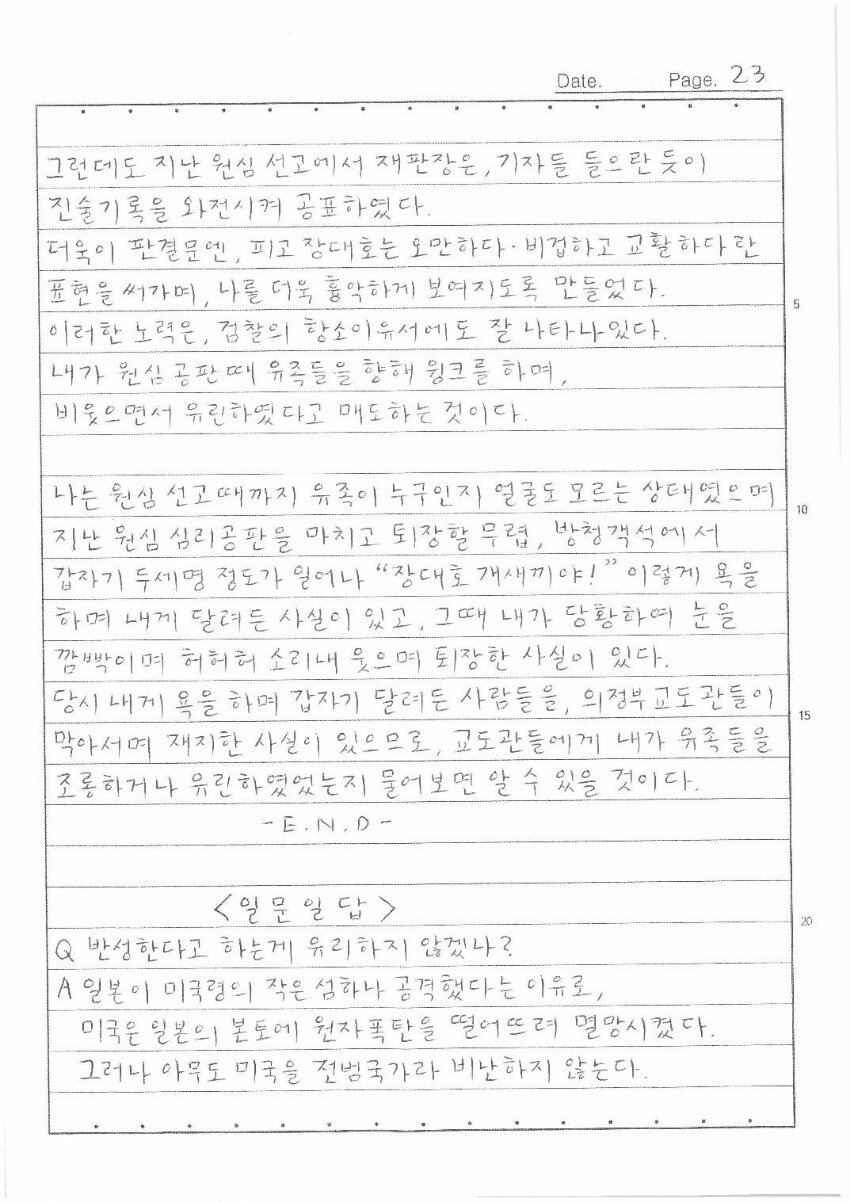 Date. Page. 23
그런데도 지난 원심 선고에서 재판장은, 기자들 들으란 듯이
진술기록을 와전시켜 공표하였다.
더욱이 판결문엔, 피고 장대호는 오만하다·비겁하고 교활하다란
표현을 써가며, 나를 더욱 흉악하게 보여지도록 만들었다.
5
이러한 노력은, 검찰의 항소이유서에도 잘 나타나있다.
내가 원심 공판때 유족들을 향해 윙크를 하며,
비웃으면서 유린하였다고 매도하는 것이다.
나는 원심 선고때까지 유족이 누구인지 얼굴도 모르는 상태였으며
10
지난 원심 심리공판을 마치고 퇴장할 무렵, 방청객석에서
갑자기 두세명 정도가 일어나 "장대호 개새끼야!" 이렇게 욕을
하며 내게 달려든 사실이 있고, 그때 내가 당황하여 눈을
깜빡이며 허허허 소리내 웃으며 퇴장한 사실이 있다.
당시 내게 욕을 하며 갑자기 달려든 사람들을, 의정부교도관들이
15
막아서며 재지한 사실이 있으므로, 교도관들에게 내가 유족들을
조롱하거나 유린하였었는지 물어보면 알 수 있을 것이다.
- E.N.D -
<일문일답>
20
Q 반성한다고 하는게 유리하지 않겠나?
A 일본이 미국령의 작은 섬하나 공격했다는 이유로,
미국은 일본의 본토에 원자폭탄을 떨어뜨려 멸망시켰다.
그러나 아무도 미국을 전범국가라 비난하지 않는다.